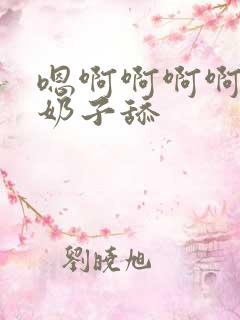 嗯啊啊啊啊
奶子舔
劉曉旭